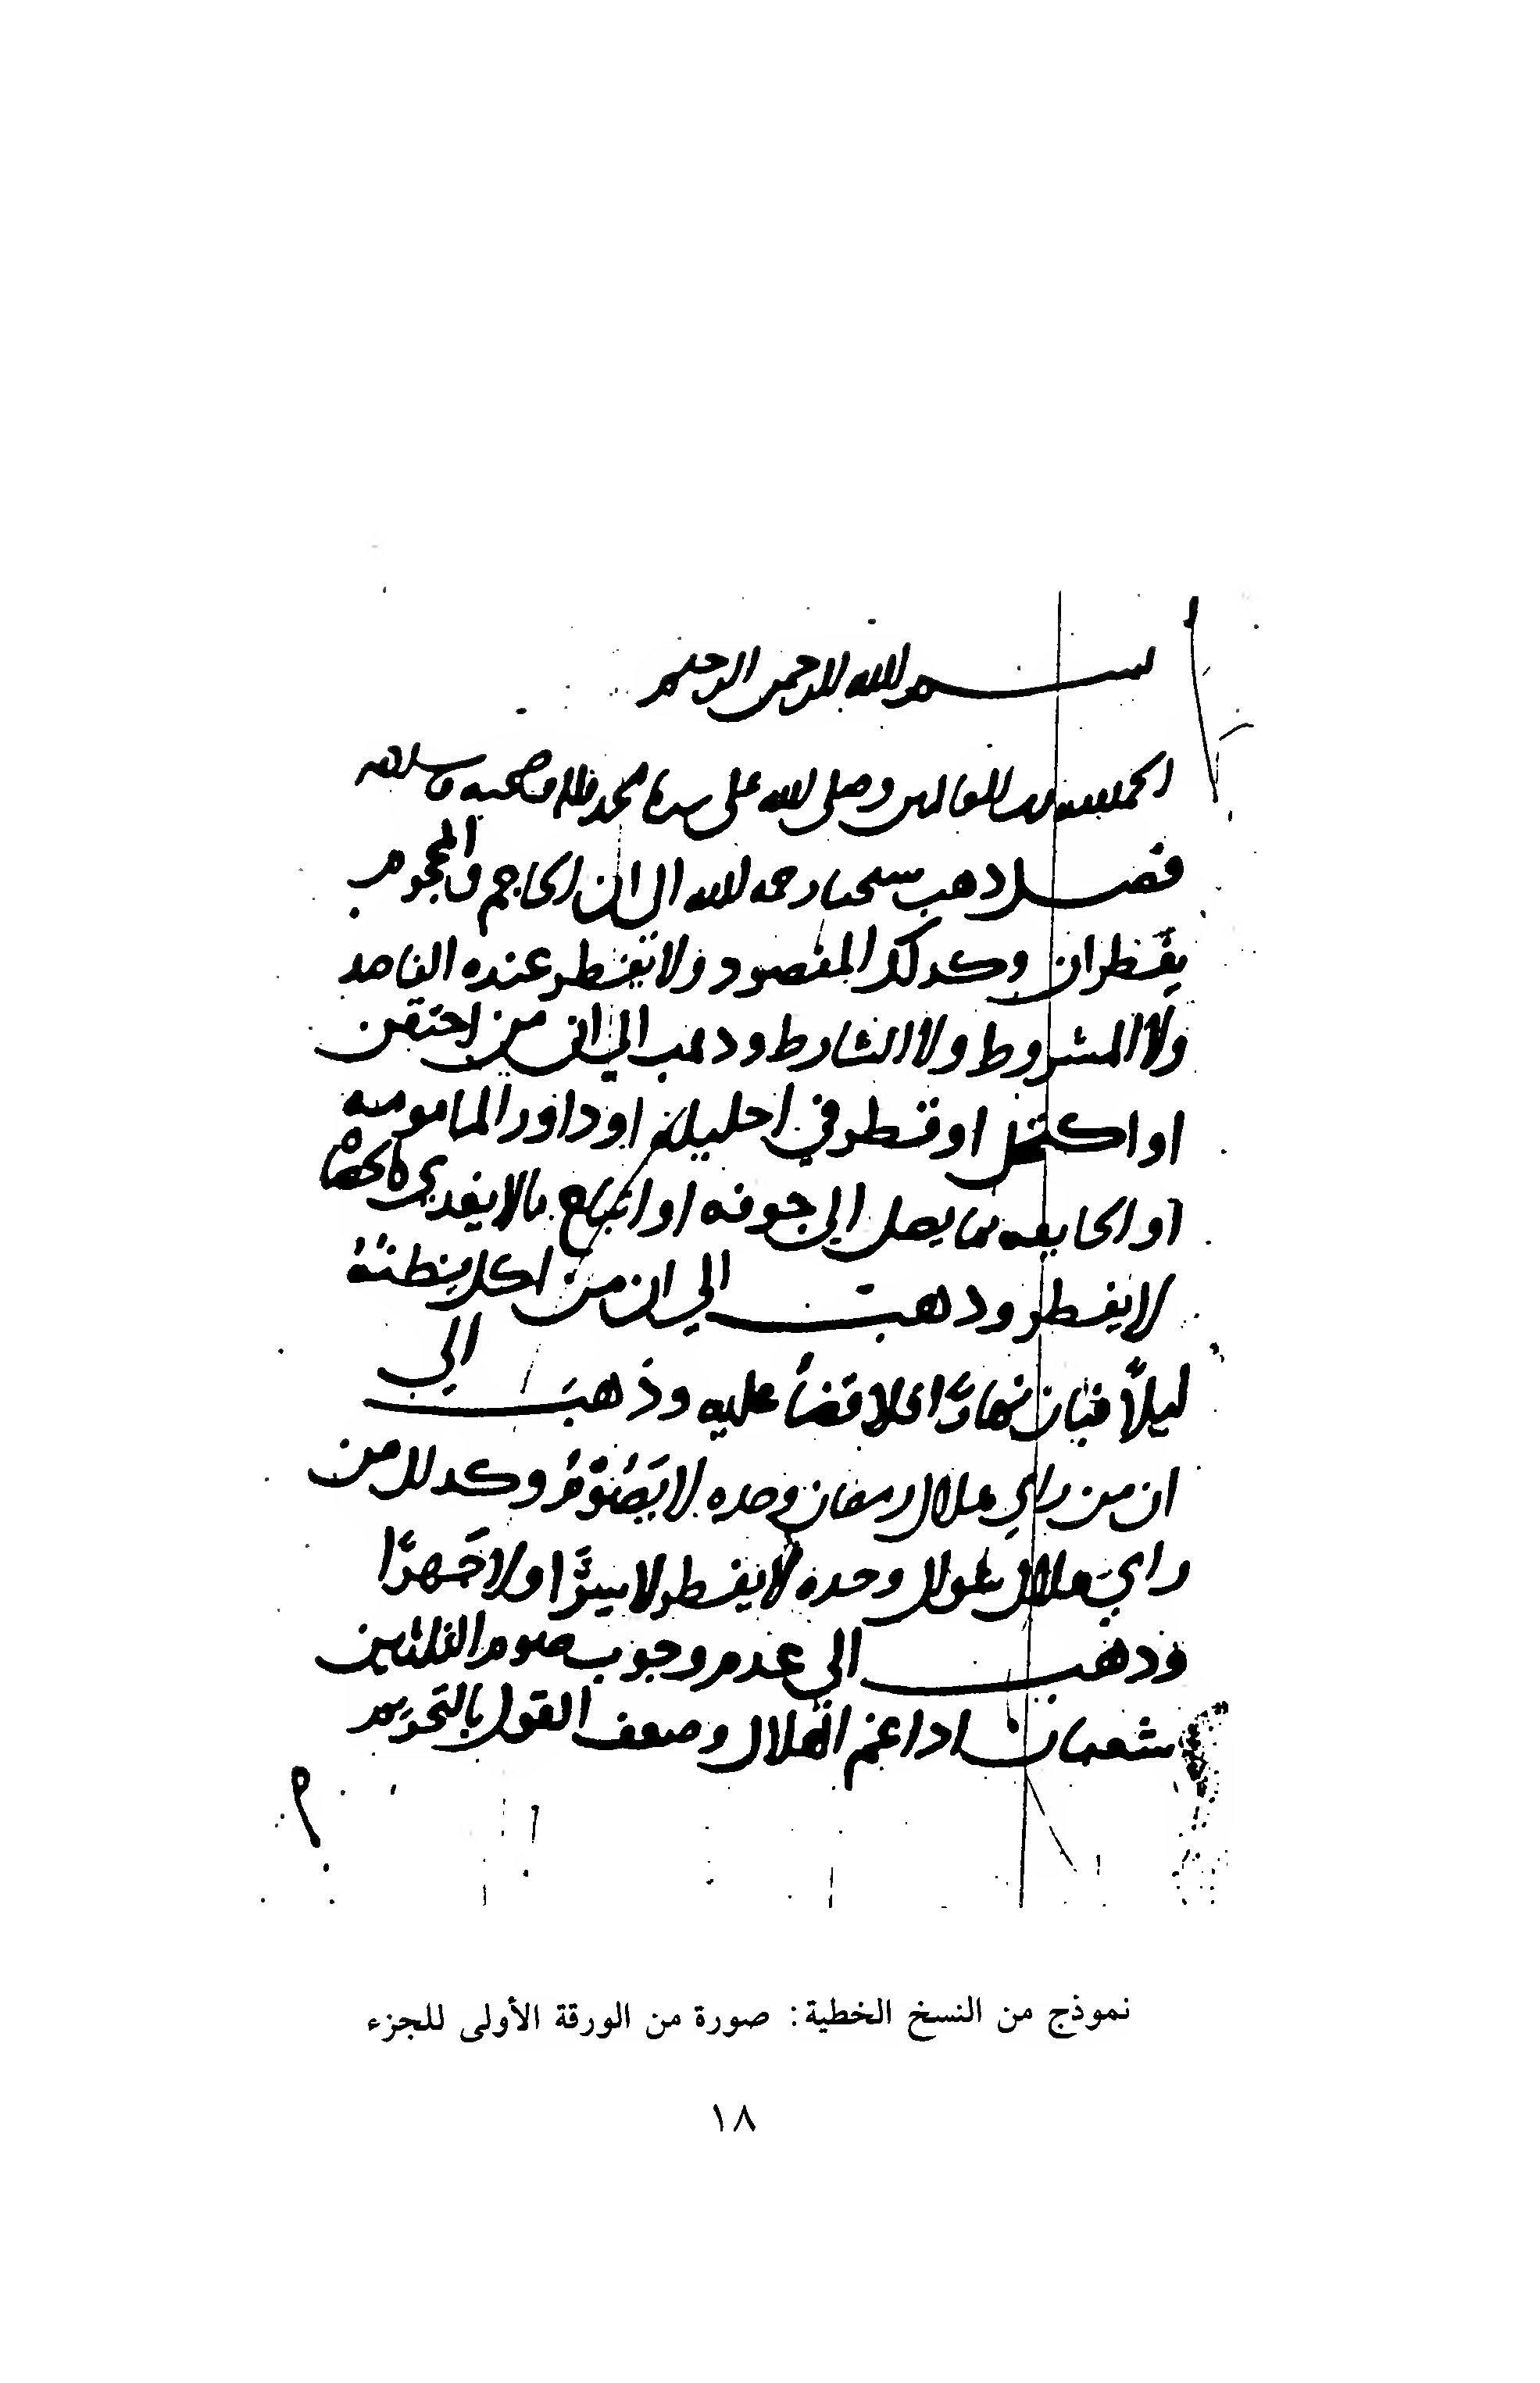 بسم الله الرحمن الرحيم
الحمد لله رب العالمين وصلى الله على سيدنا محمد واله وصحبه وسلم
فصل ذهب شيخنا رحمه الله الى ان الحاجم والمحجوم
يفطران وكذلك المفصود ولا يفطر عنده الفاصد
ولا المشروط ولا الشارط وذهب الي ان من احتقن
او اكتحل او قطر في احليله او داوى المامومه
او الجايفه بما يصل الي جوفه او ابتلع مالا يغدي كالحصاة
لا يفطر وذهب الي ان من اكل يظنه
ليلاً فبان نهارًا فلا قضا عليه وذهب الي
ان من راي هلال رمضان وحده لا يَصُوْمُ وكدلك من
راي هلال شوال وحده لا يفطر لا سِرًّا ولا جَهرًا
وذهب الي عدم وجوب صوم الثلاثين
شعبان ادا غم الهلال وضعف القول بالتحريم
نموذج من النسخ الخطية: صورة من الورقة الأولى للجزء
١٨